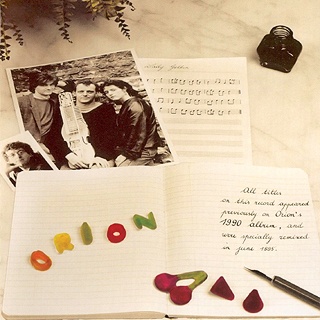 ORION
All titles
on this record appeared
previously on Orion's
1990 album, and
were specially remixed
in june 1995.